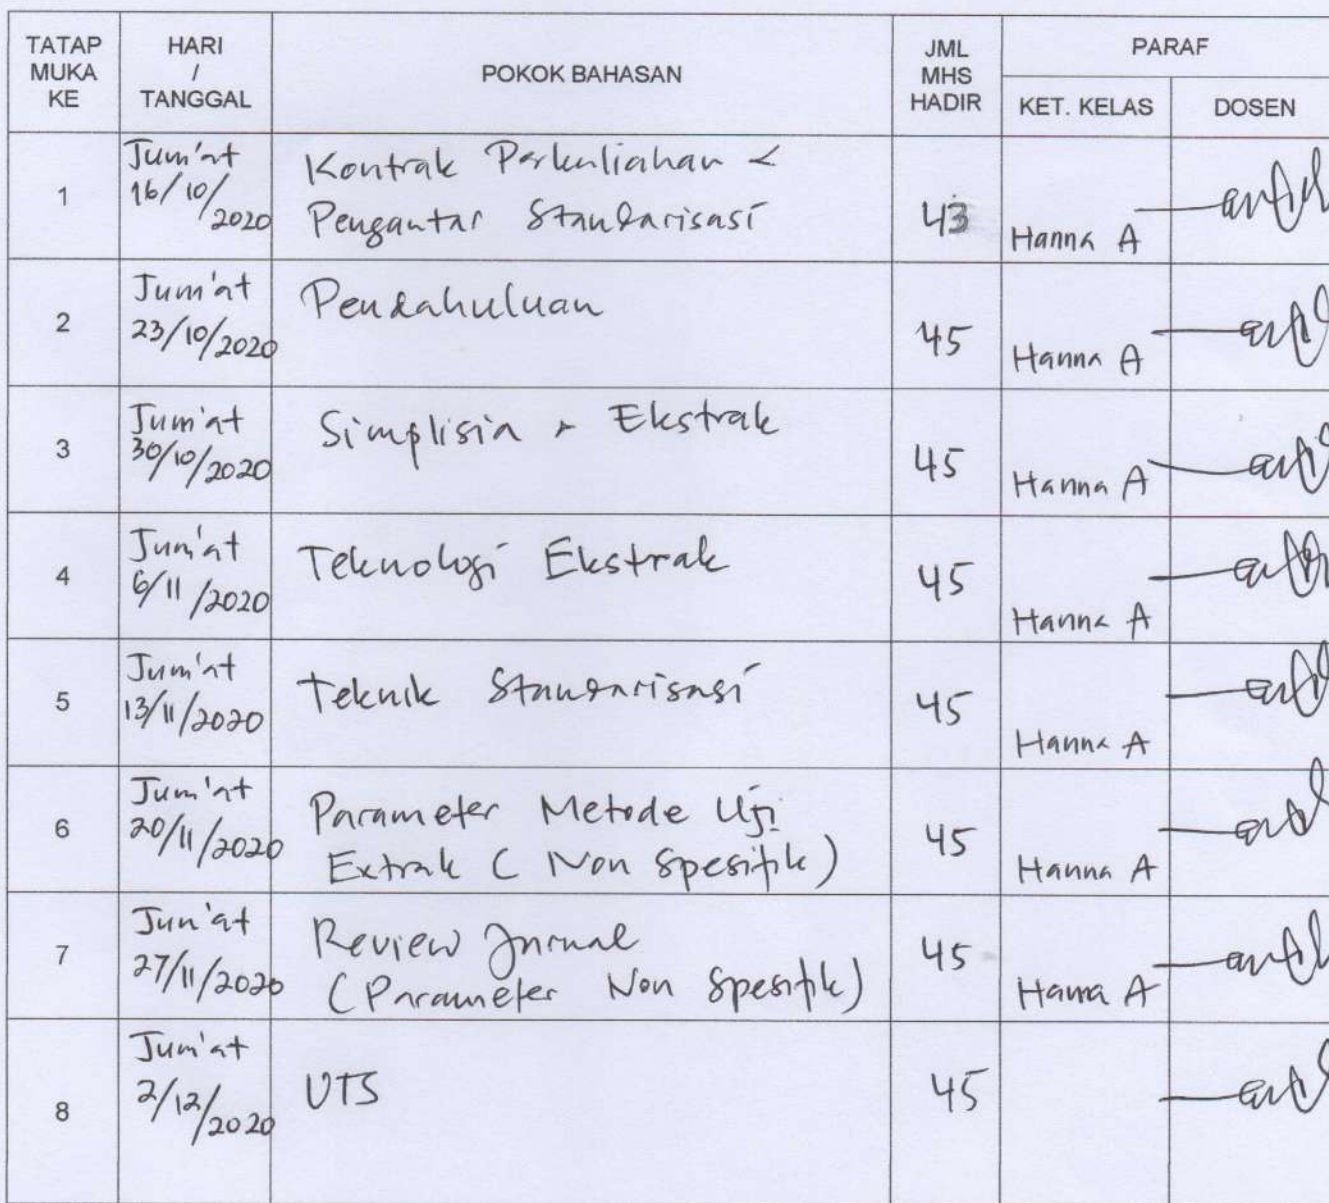 TATAP MUKA KE HARI / TANGGAL POKOK BAHASAN JML MHS HADIR PARAF
KET. KELAS DOSEN
1 Jum'at 16/10/2020 Kontrak Perkuliahan &
Pengantar Standarisasi 43 Hanna A
2 Jum'at 23/10/2020 Pendahuluan 45 Hanna A
3 Jum'at 30/10/2020 Simplisia & Ekstrak 45 Hanna A
4 Jum'at 6/11/2020 Teknologi Ekstrak 45 Hanna A
5 Jum'at 13/11/2020 Teknik Standarisasi 45 Hanna A
6 Jum'at 20/11/2020 Parameter Metode Uji
Extrak (Non Spesifik) 45 Hanna A
7 Jum'at 27/11/2020 Review Jurnal
(Parameter Non Spesifik) 45 Hanna A
8 Jum'at 2/12/2020 UTS 45